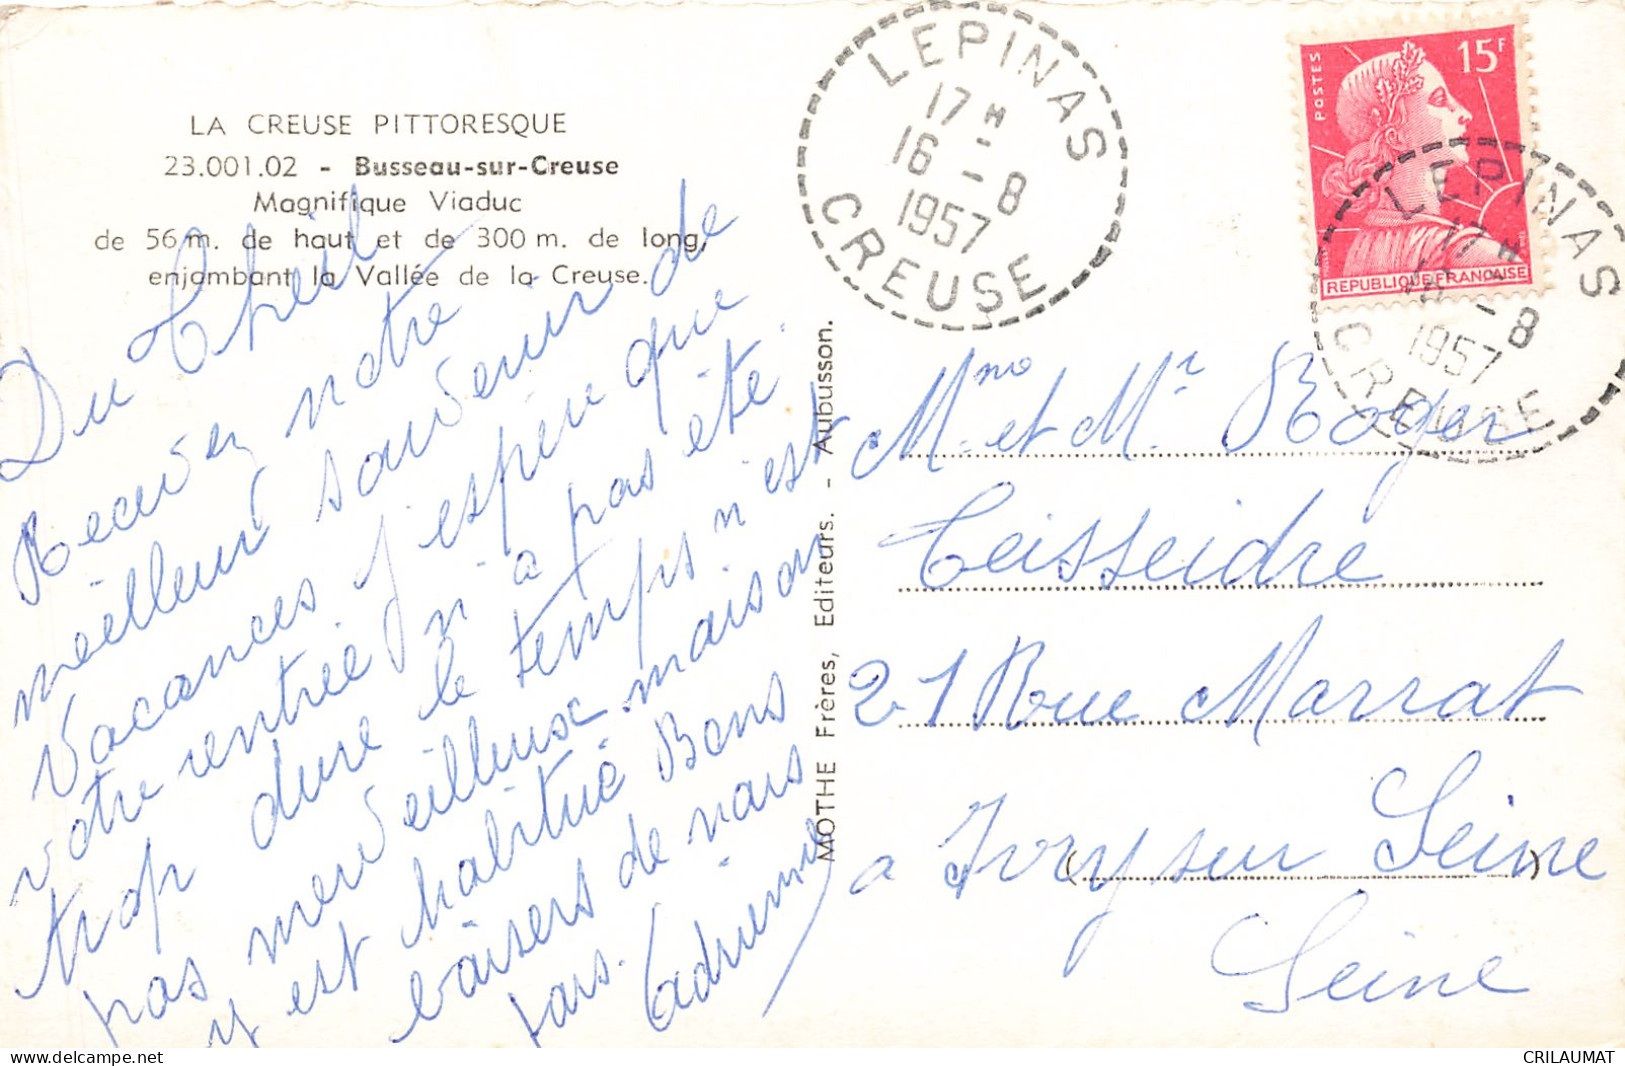 LA CREUSE PITTORESQUE
23.001.02 - Busseau-sur-Creuse
Magnifique Viaduc
de 56 m. de haut et de 300 m. de long,
enjambant la Vallée de la Creuse.
Du Theil
Recevez notre
meilleur souvenir de
Vacances j'espère que
votre rentrée n'a pas été
trop dure le temps n'est
pas merveilleux maison
y est habitué Bons
baisers de nous
tous. Adrienne
MOTHE Frères, Editeurs. - Aubusson.
LEPINAS
17 H
16 - 8
1957
CREUSE
POSTES
15F
REPUBLIQUE FRANÇAISE
LEPINAS
17 H
16 - 8
1957
CREUSE
Mme et Mr Roger
Teisseidre
21 Rue Marrat
a Ivry sur Seine
Seine
CRILAUMAT